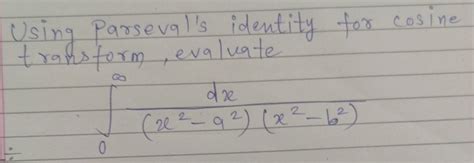 Using Parseval's identity for cosine
transform, evaluate
∞
∫ dx / (x² - a²) (x² - b²)
0